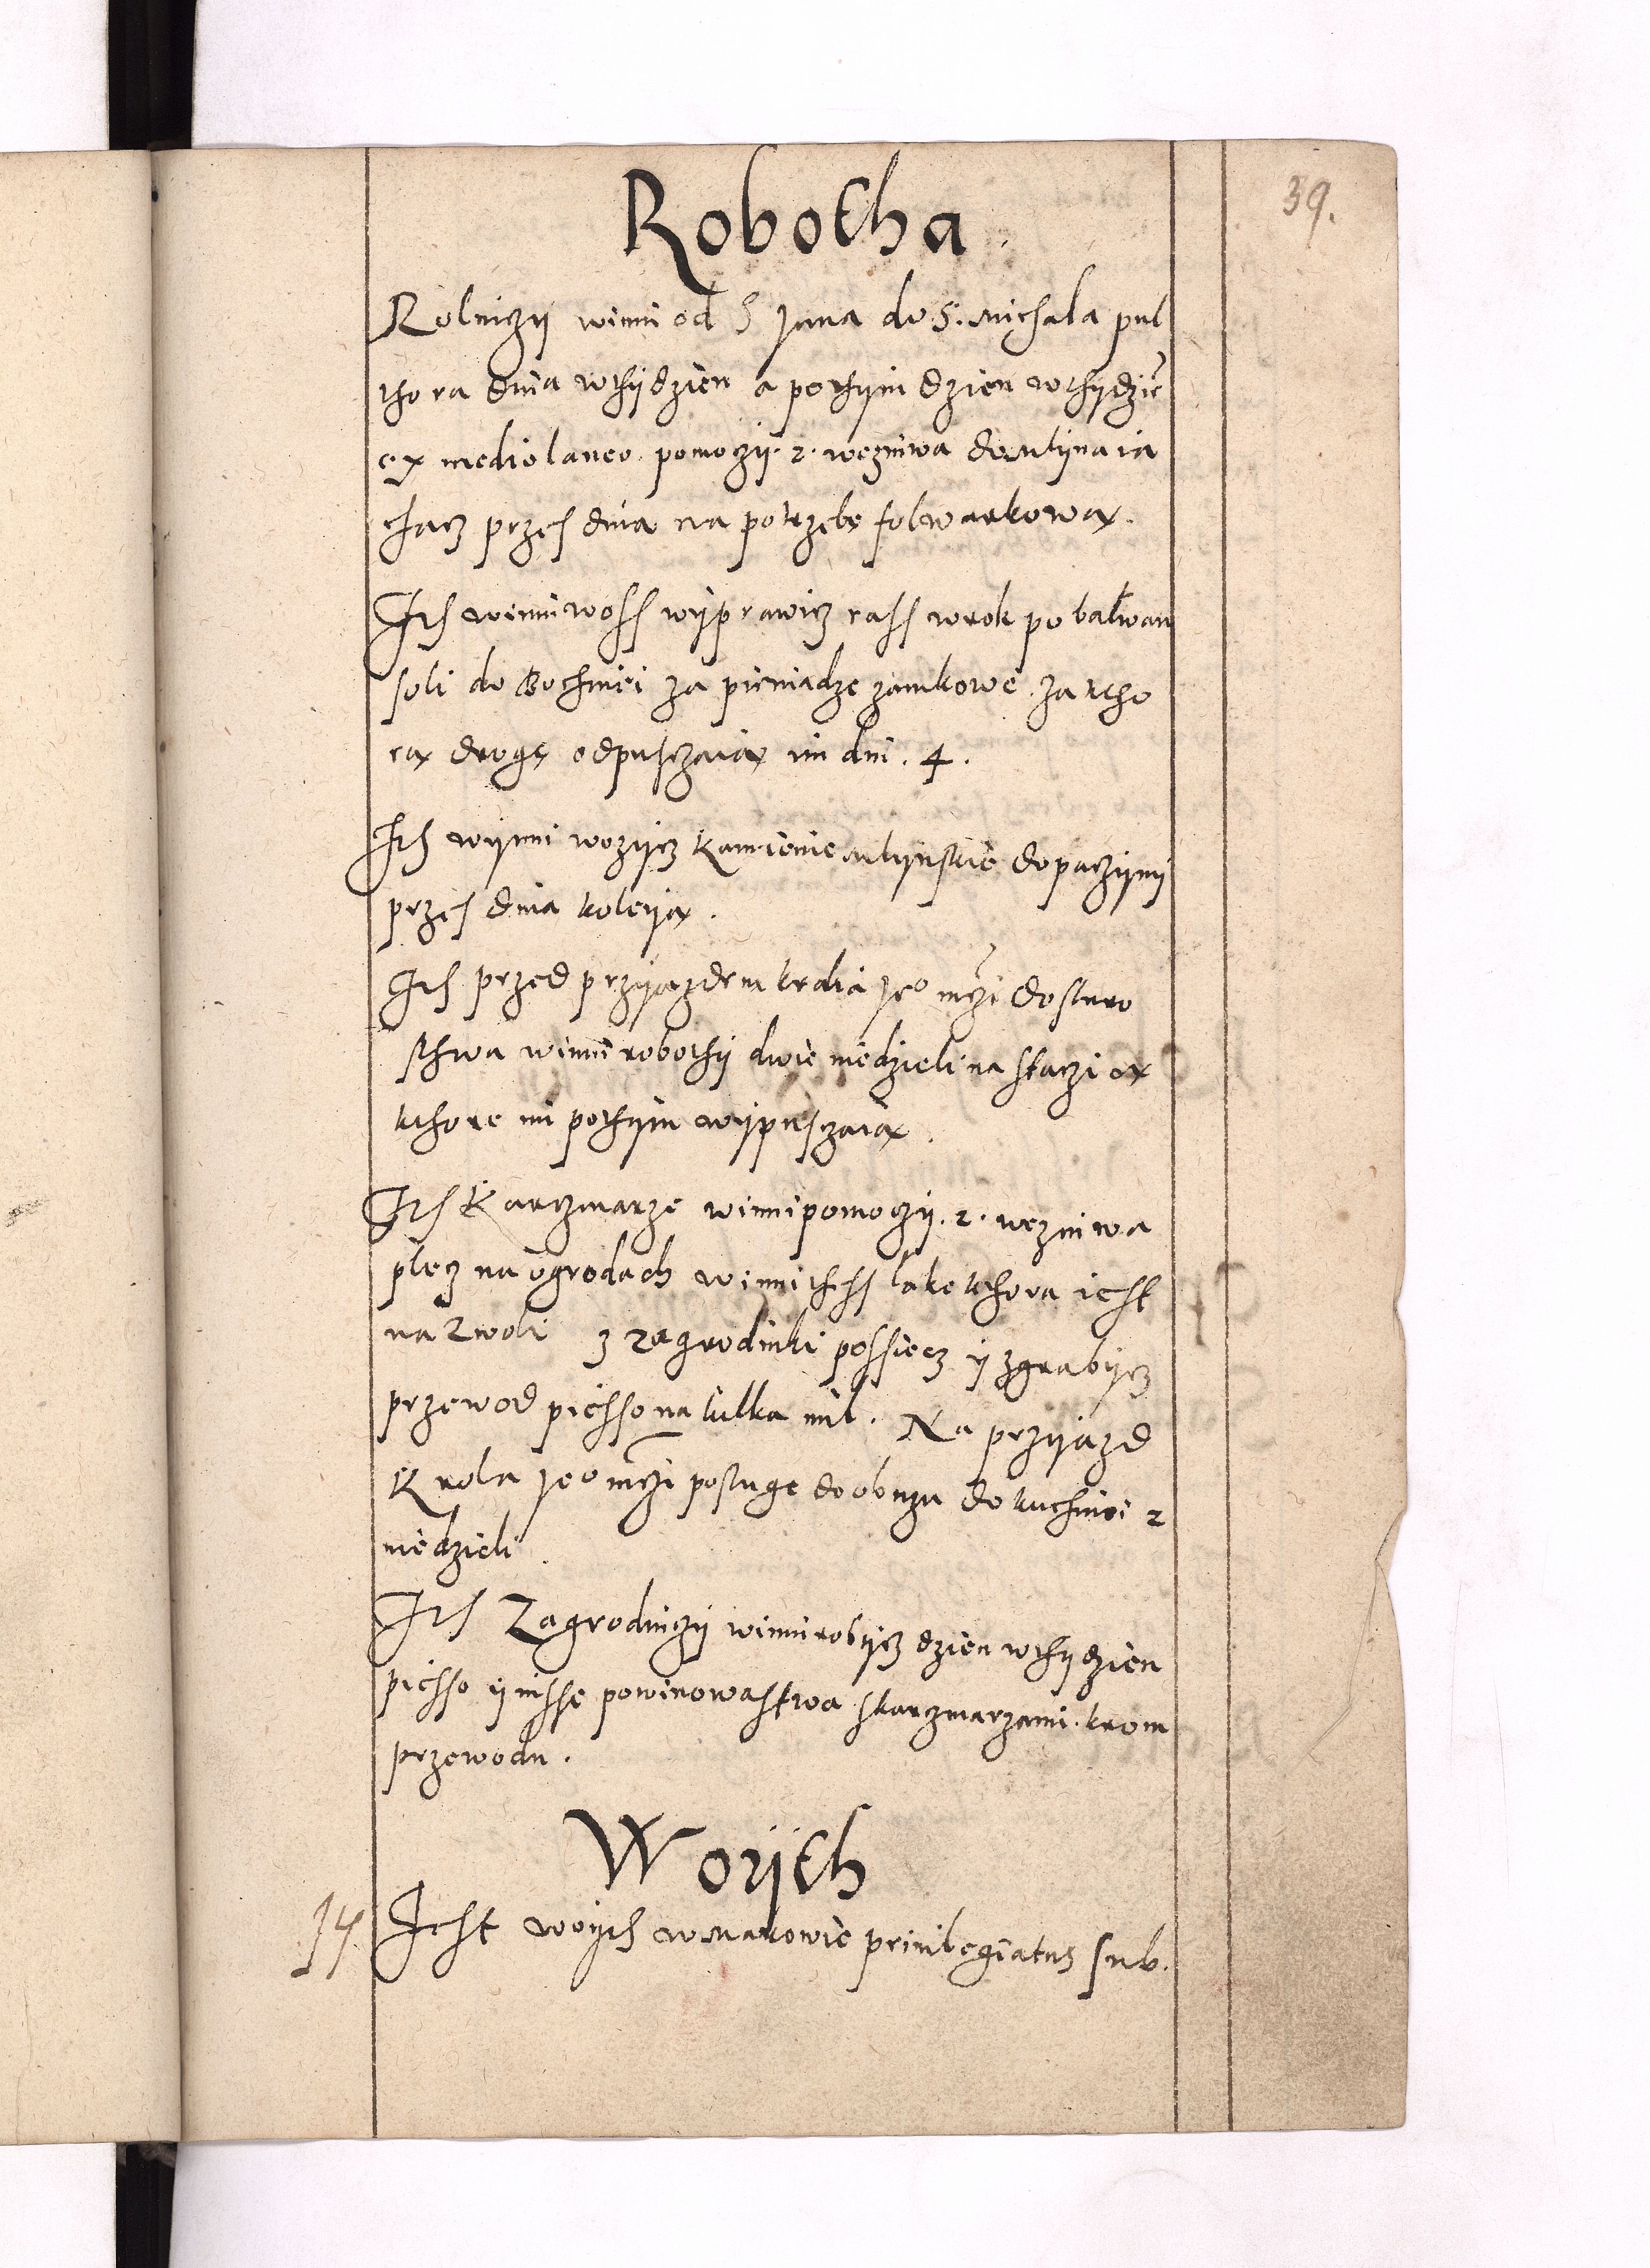 39.
Robotha
Rolniczy winni od S Jana do S. Michala pul
thora dnia wthydzien a pothym dzien wthydzie
ex mediolaneo pomoczy. 2. wezniwa do mlyna ia
chacz przes dnia na potrzebę folwarkową.
Ith winni woss wyprawicz rass wrok po balwan
soli do Bochniei za pieniadze zamkowe. za ktho
rą drogę odpusczaią im dni. 4.
Ith wynni wozycz kamienie mlynskie do paczyny
przes dnia koleyą.
Ith przed przyiazdem krola Jeo mczi do staro
sthwa winni robothy dwie niedzieli na staczią
kthore im pothym wypusczaią.
Ith Karczmarze winni pomoczy. 2. wezniwa
plecz na ogrodach winni thess lake kthora iest
na Zwoli z zagrodniki possiecz y zgrabycz
przewod piesso na kilka mil. Na przyiazd
Krola Jeo mczi poslugę do obozu do kuchniei 2
niedzieli.
Ith Zagrodniczy winni robycz dzien wthydzien
piesso y insse powinowastwa skarczmarzami. krom
przewodu.
Woyth
14 Iest woyth wMakowie priuilegiatus sub.